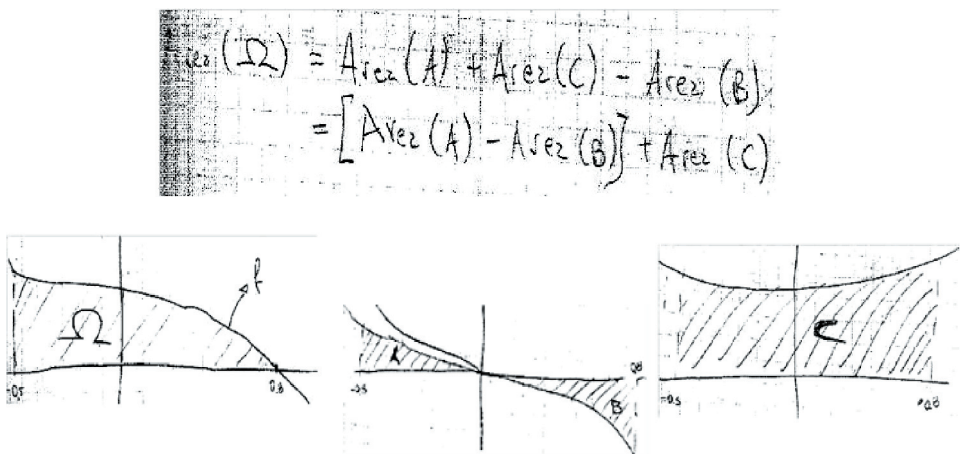 (Ω) = Area(A) + Area(C) - Area(B)
= [Area(A) - Area(B)] + Area(C)
f
Ω
-0.5
0.8
A
B
-0.5
0.8
C
-0.5
0.8